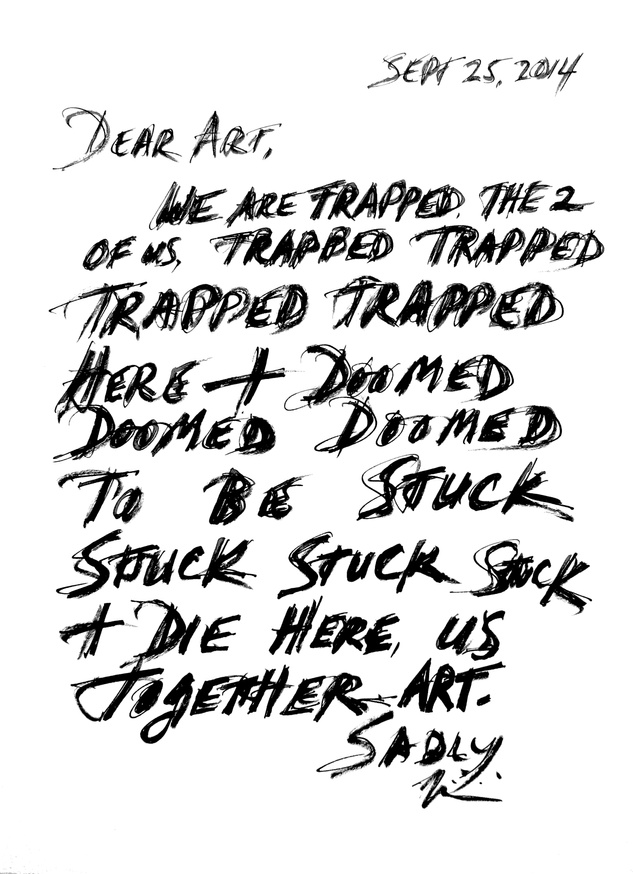 SEPT 25, 2014
DEAR ART,
WE ARE TRAPPED. THE 2
OF US, TRAPPED TRAPPED
TRAPPED TRAPPED
HERE + DOOMED
DOOMED DOOMED
TO BE STUCK
STUCK STUCK STUCK
+ DIE HERE, US
TOGETHER ART.
SADLY